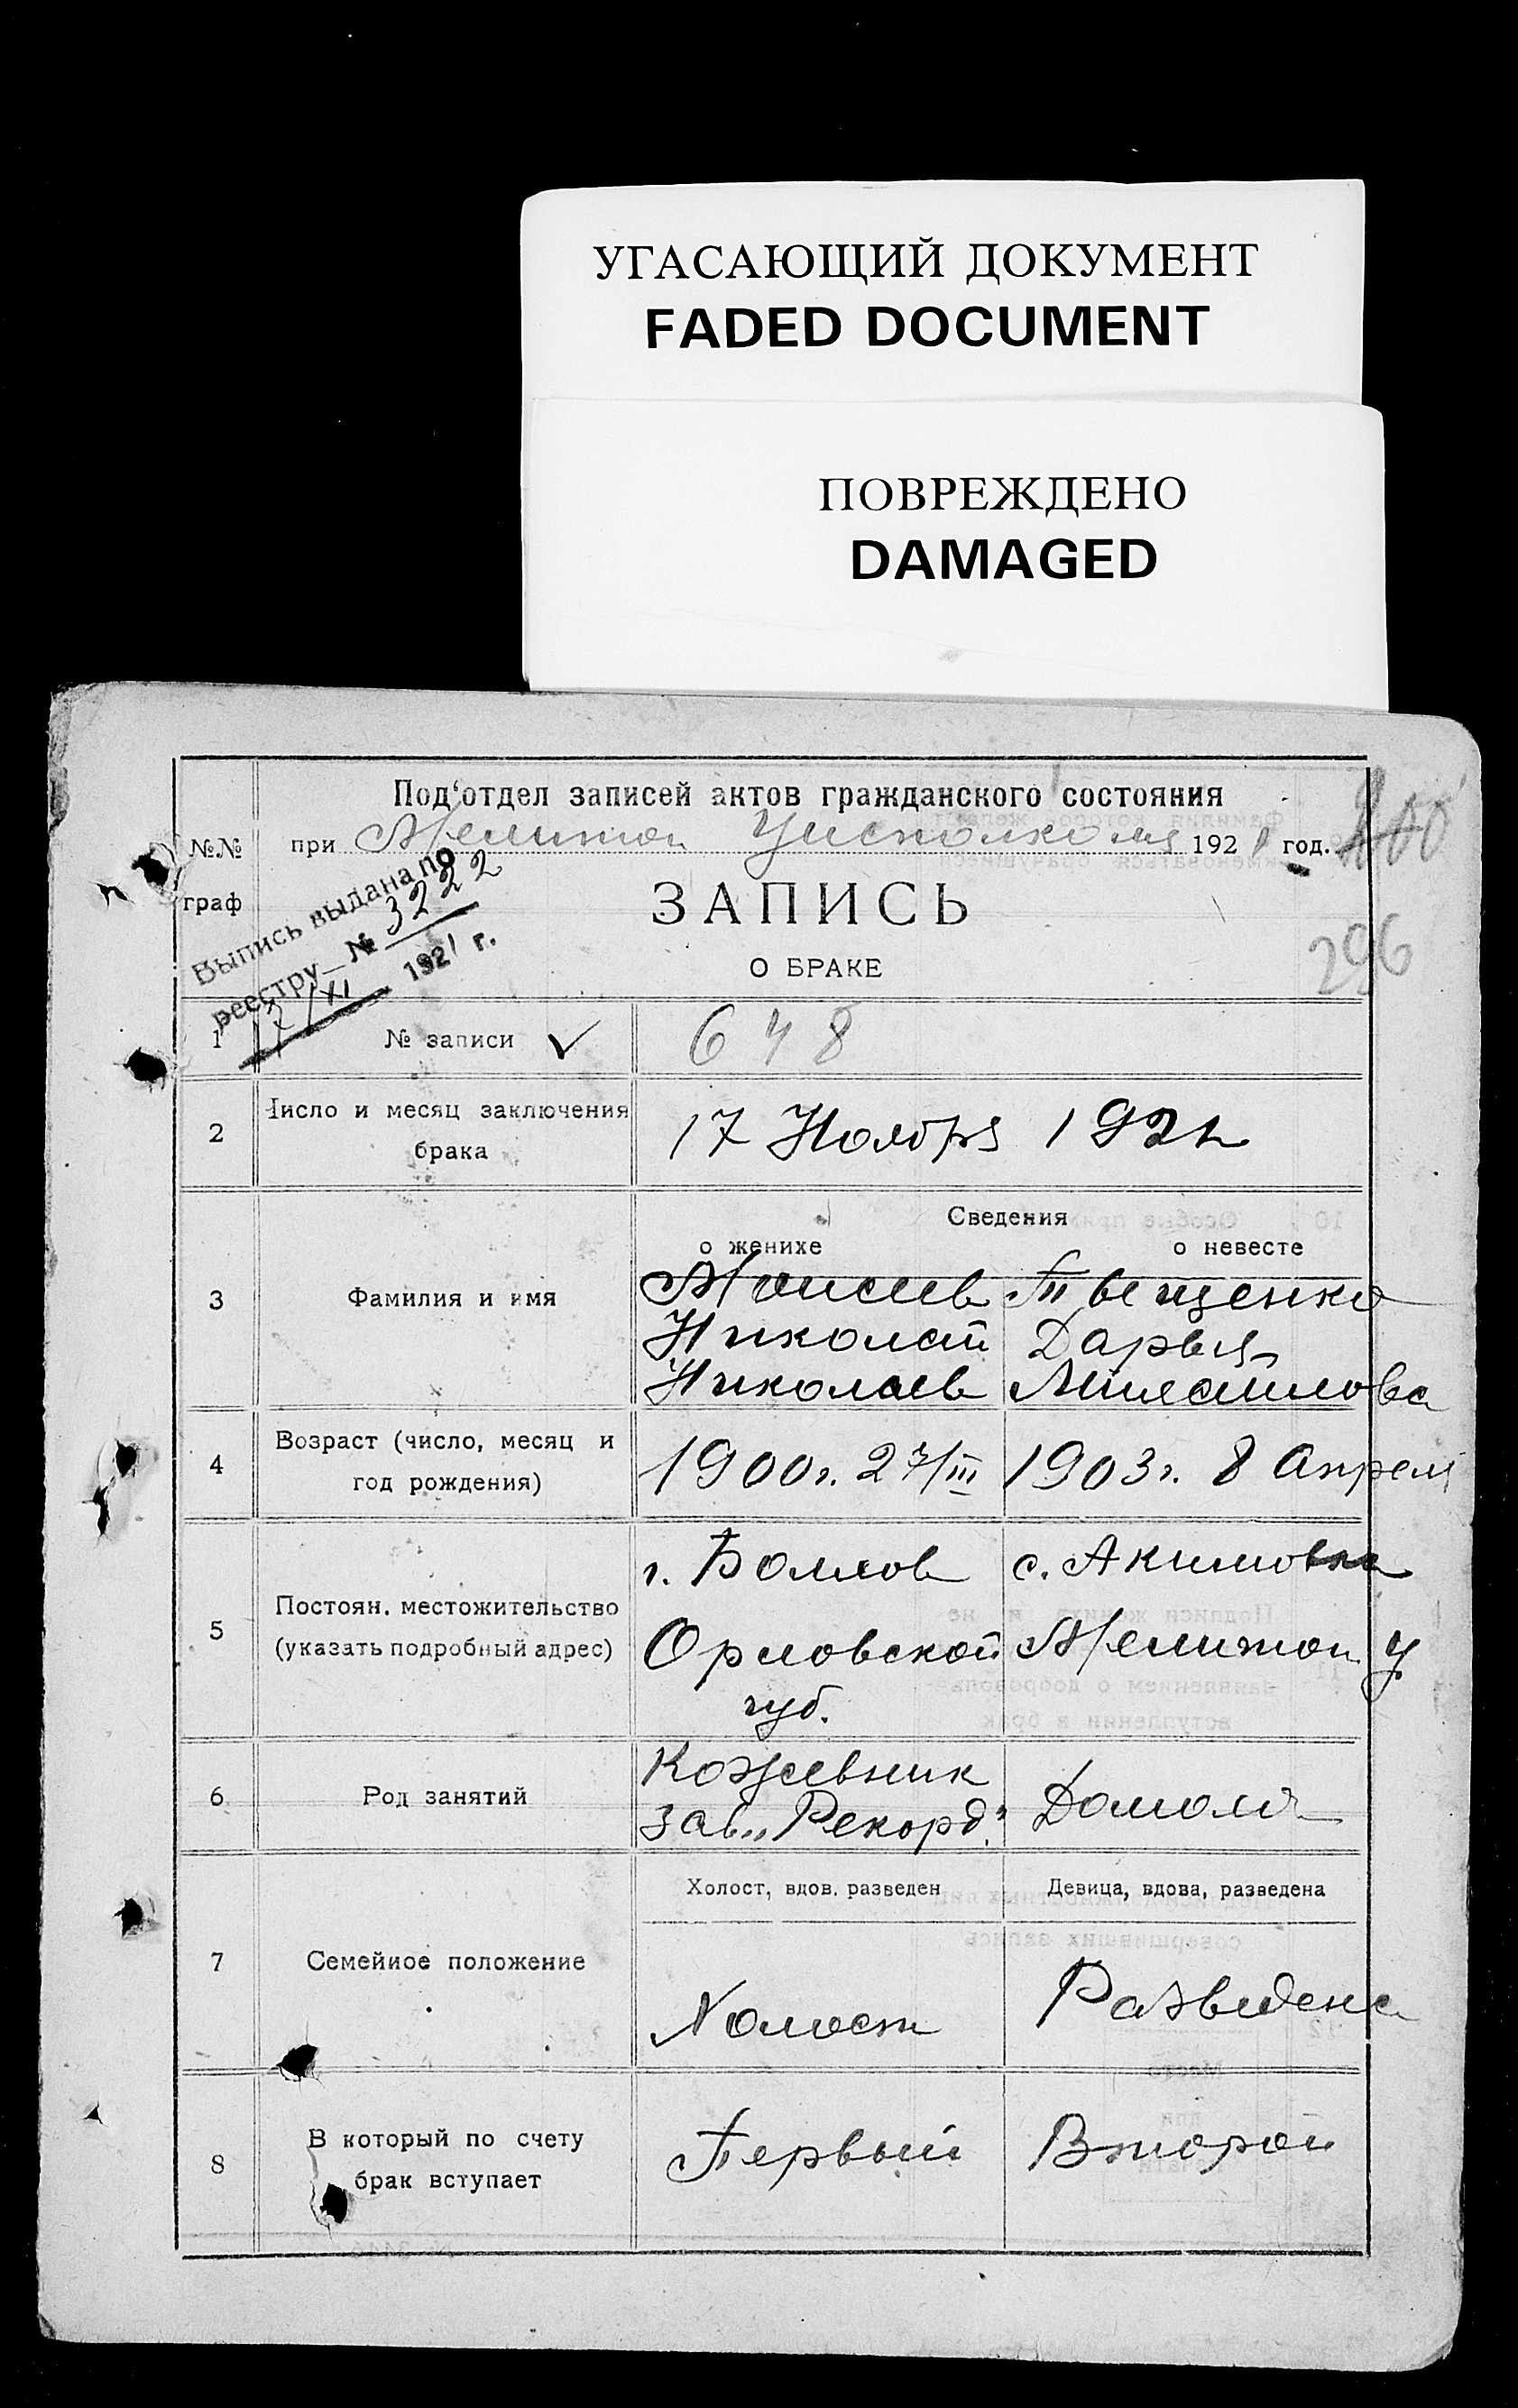 УГАСАЮЩИЙ ДОКУМЕНТ
FADED DOCUMENT
ПОВРЕЖДЕНО
DAMAGED
Под‘отдел записей актов гражданского состояния
№№ граф
при Мелитоп Уисполкома 1921 год.
400
Выпись выдана по
реестру № 3222
17/XI 1921 г.
ЗАПИСЬ
О БРАКЕ
296
1 № записи 648
2 Число и месяц заключения брака 17 Ноября 1921
Сведения
о женихе о невесте
3 Фамилия и имя
Моисеев Тыщенко
Николай Дарья
Николаев
4 Возраст (число, месяц и год рождения) 1900г. 27/III 1903г. 8 Апреля
5 Постоян. местожительство (указать подробный адрес)
г. Болхов с. Акимовка
Орловской Мелитоп. у
губ.
6 Род занятий
Кожевник
зав. „Рекорд" Домохоз
Холост, вдов. разведен Девица, вдова, разведена
7 Семейное положение Холост Разведена
8 В который по счету брак вступает Первый Второй